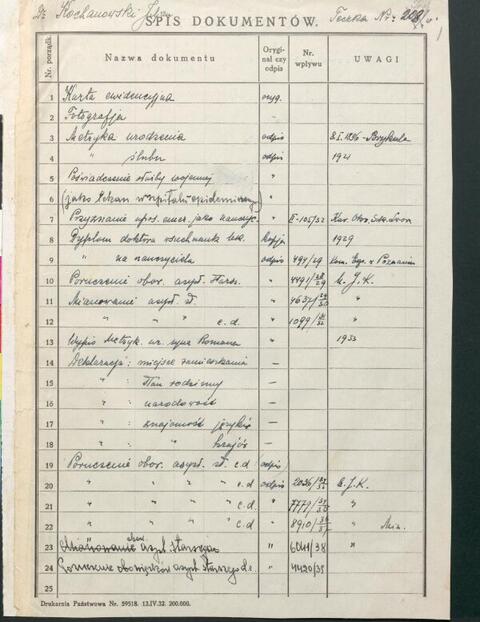 Dr Kochanowski Jan
SPIS DOKUMENTÓW. Teczka Nr:
Nr. porządk. Nazwa dokumentu Orygi-nał czy odpis Nr. wpływu UWAGI
1 Karta ewidencyjna oryg.
2 Fotografja "
3 Metryka urodzenia odpis
4 " ślubu odpis 1921
5 Poświadczenie służby wojennej "
6 (jako lekarz w szpitalu epidemiczny) "
7 Przyznanie jako nauczyc. " II-105/32 Kur. Okr. Szk. Lwow
8 Dyplom doktora wszechnauk lek. kopja 1929
9 " na nauczyciela odpis 494/29 Kom. Egz. w Poznaniu
10 Poruczenie obow. asyst. " 4491/28/29 U. J. K.
11 Mianowanie asyst. st. " 4637/29/30 "
12 " " " c.d. " 1099/31/32 "
13 Wypis Metryk. ur. syna Romana " 1933
14 Deklaracja: miejsce zamieszkania —
15 " : stan rodzinny —
16 " : narodowość —
17 " : znajomość języków —
18 " : " krajów —
19 Poruczenie obow. asyst. st. c.d. odpis
20 " " " " c.d. odpis U.J.K.
21 " " " " c.d. " "
22 " " " " c.d. " " Min.
23 Mianowanie asyst. starszego " 6041/38 "
24 Poruczenie obowiązków asyst. starszego d.c. " 4420/35
25
Drukarnia Państwowa Nr. 59518. 13.IV.32. 200.000.